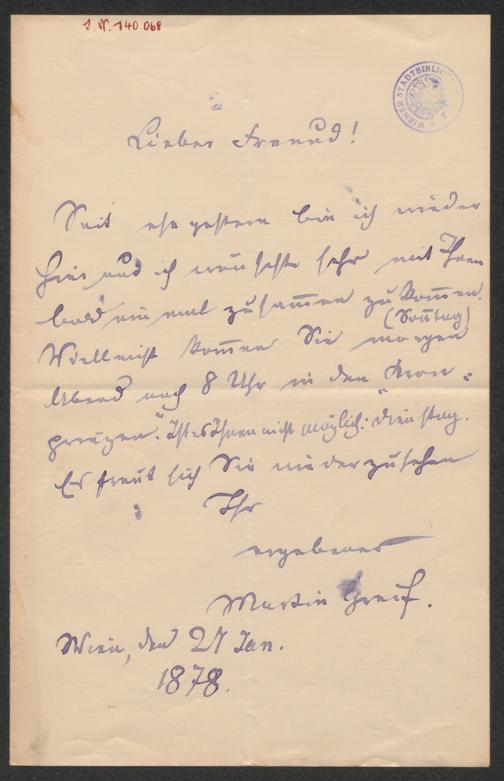 I. N. 140.068
WIENER STADTBIBLIOTHEK
Lieber Freund!
Seit ehegestern bin ich wieder
hier und ich wünschte sehr mit Ihnen
bald einmal zusam̅en zu kom̅en.
(Son̅tag)
Vielleicht kom̅en Sie morgen
Abend nach 8 Uhr in den „Kron-
prinzen“. Ist es Ihnen nicht möglich: Dienstag.
Es freut sich Sie wiederzusehen
Ihr
ergebener
Martin Greif.
Wien, den 27 Jan.
1878.